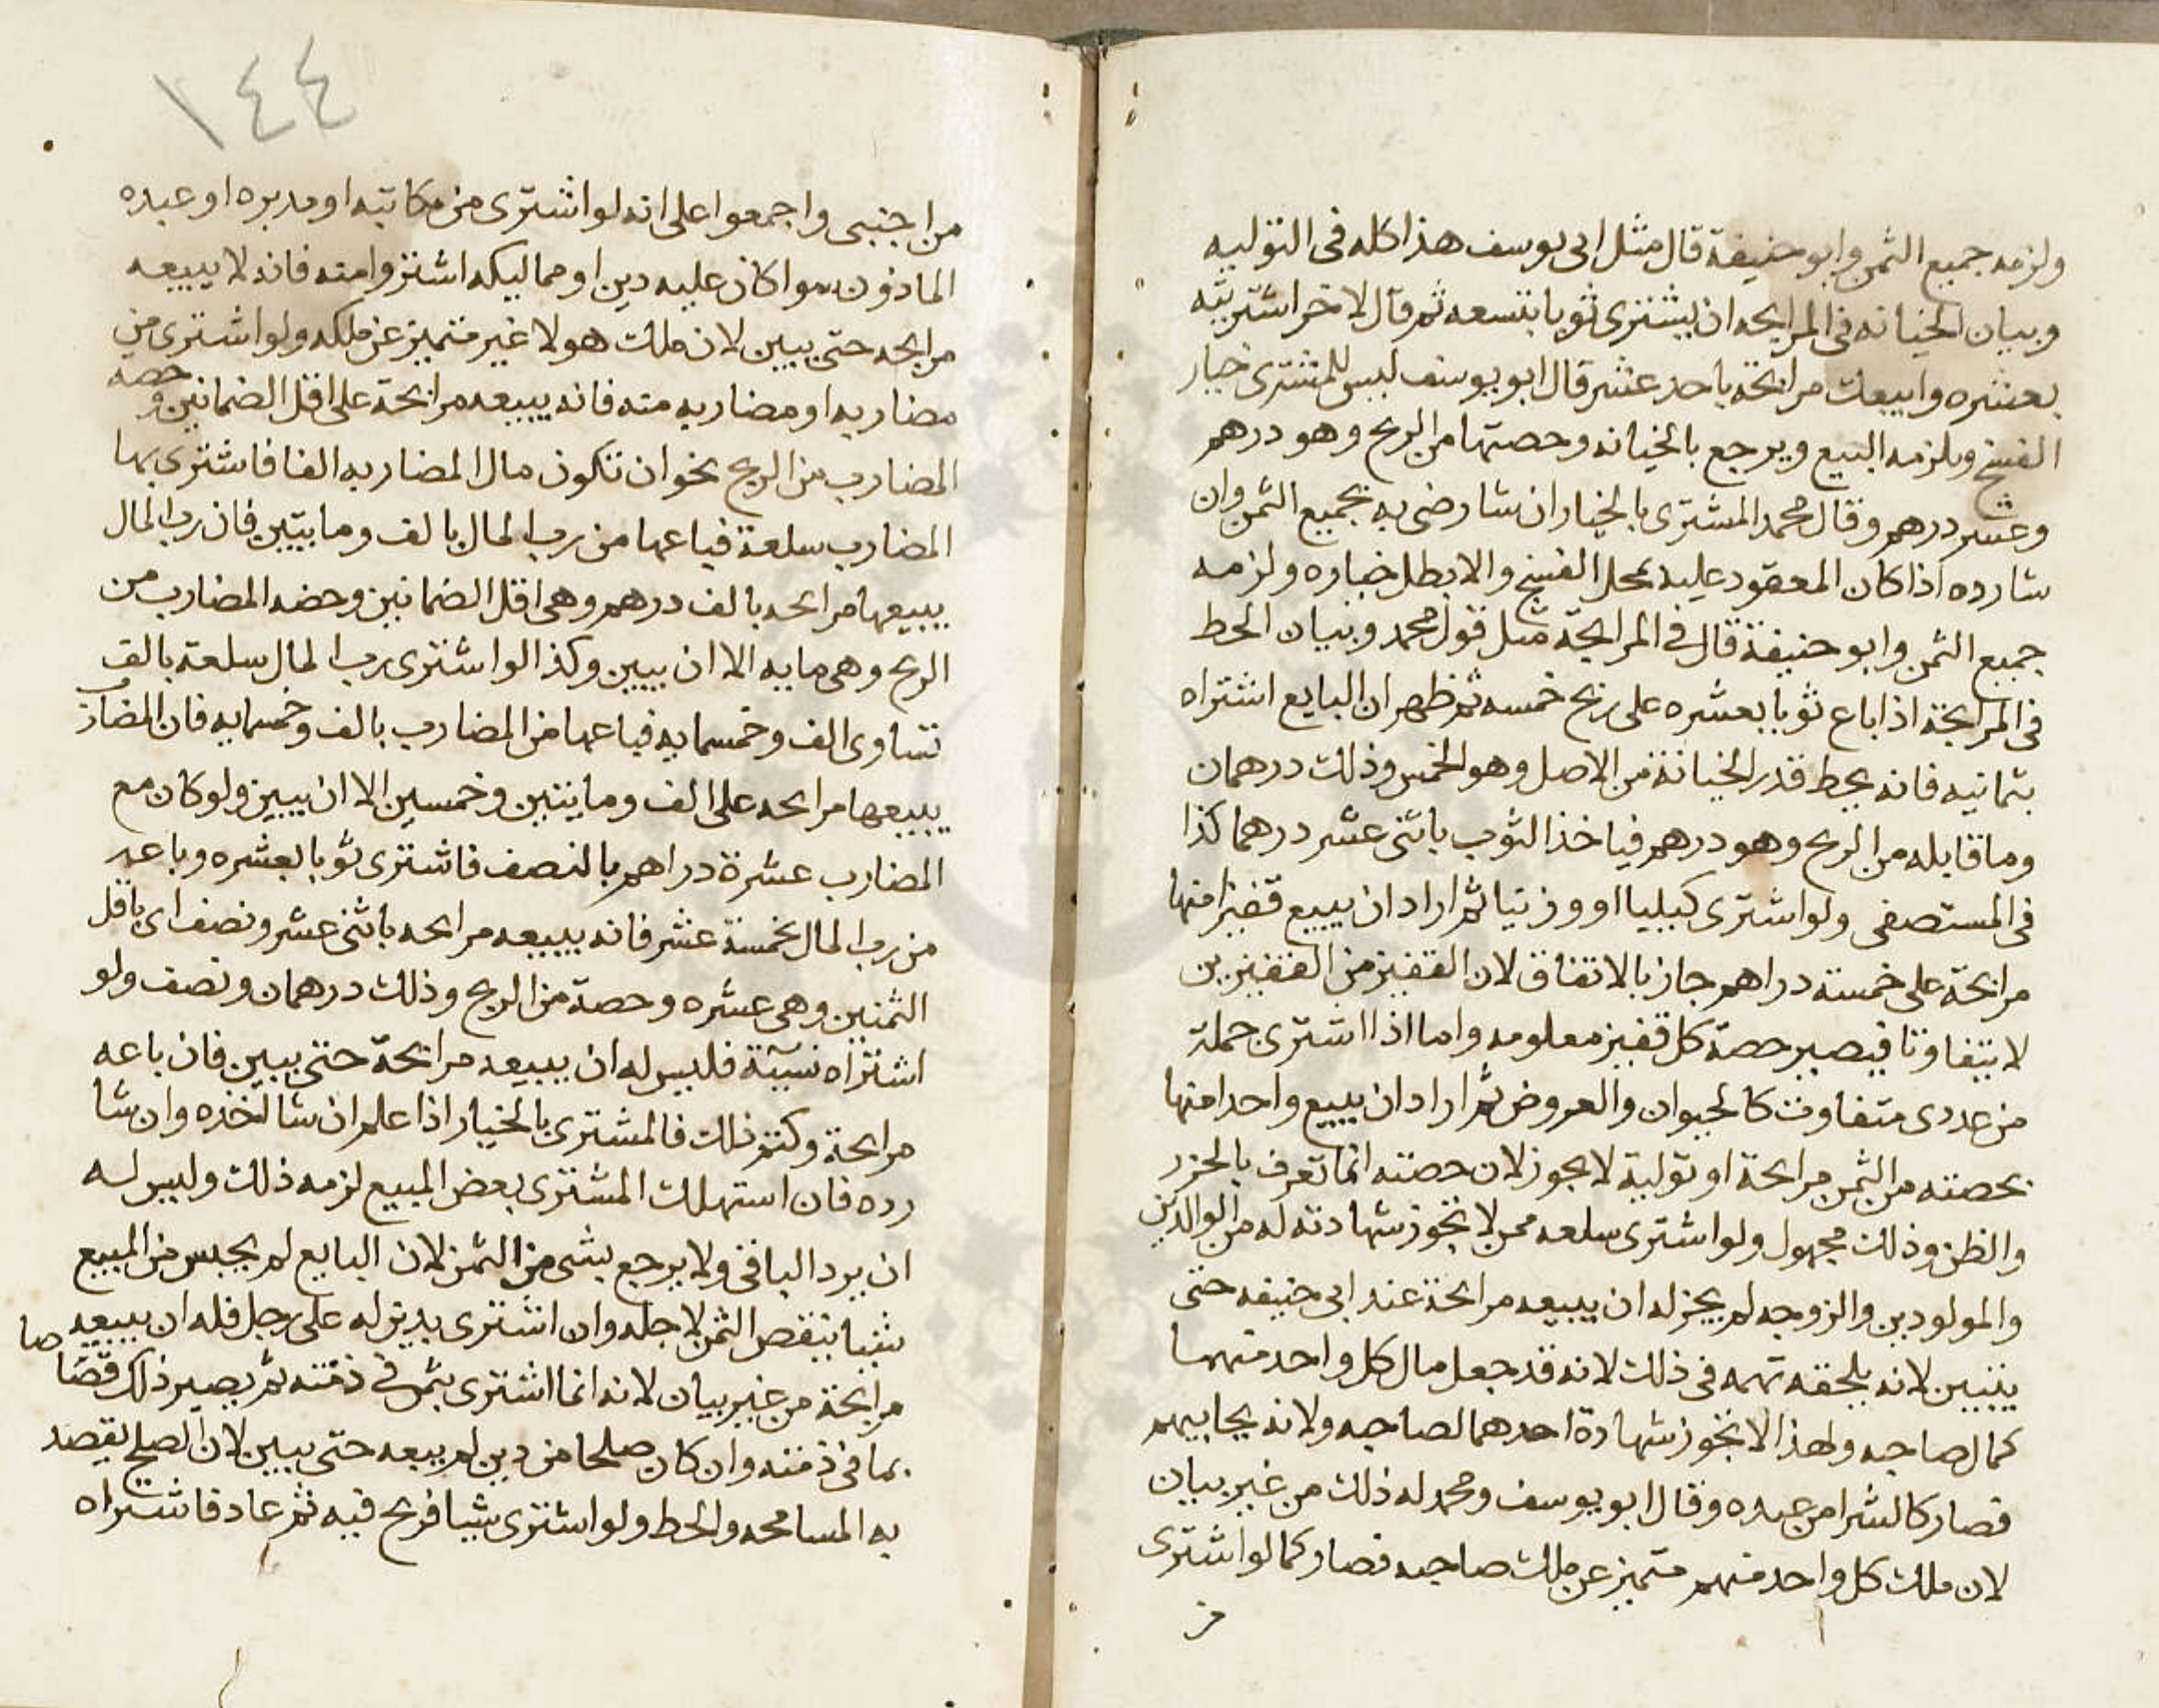 ولزمه جميع الثمن وابو حنيفة قال مثل ابى يوسف هذا كله فى التوليه
وبيان الخيانه فى المرابحه ان يشترى ثوبا بتسعه ثم قال لاخر اشتريته
بعشره وابيعك مرابحة باحد عشر قال ابو يوسف ليس للمشترى خيار
الفسخ ويلزمه البيع ويرجع بالخيانه وحصتها من الربح وهو درهم
وعشر درهم وقال محمد المشترى بالخيار ان شا رضى به بجميع الثمن وان
شا رده اذا كان المعقود عليه بمحل الفسخ والا بطل خياره ولزمه
جميع الثمن وابو حنيفة قال فى المرابحة مثل قول محمد وبيان الحط
فى المرابحة اذا باع ثوبا بعشره على ربح خمسه ثم ظهر ان البايع اشتراه
بثمانيه فانه يحط قدر الخيانة من الاصل وهو الخمس وذلك درهمان
وما قابله من الربح وهو درهم فياخذ الثوب باثنى عشر درهما كذا
فى المستصفى ولو اشترى كيليا او وزنيا ثم اراد ان يبيع قفيزا منها
مرابحة على خمسة دراهم جاز بالاتفاق لان القفيز من القفيزين
لا يتفاوتا فيصير حصة كل قفيز معلومه واما اذا اشترى جملة
من عددى متفاوت كالحيوان والعروض ثم اراد ان يبيع واحدا منها
بحصته من الثمن مرابحة او تولية لا يجوز لان حصته انما تعرف بالحزر
والظن وذلك مجهول ولو اشترى سلعه ممن لا تجوز شهادته له من الوالدين
والمولودين والزوجه لم يجز له ان يبيعه مرابحة عند ابى حنيفه حتى
يتبين لانه يلحقه تهمه فى ذلك لانه قد جعل مال كل واحد منهما
كمال صاحبه ولهذا لا تجوز شهادة احدهما لصاحبه ولانه يحابيهم
فصار كالشرا من عبده وقال ابو يوسف ومحمد له ذلك من غير بيان
لان ملك كل واحد منهم متميز عن ملك صاحبه فصار كما لو اشترى
من
١٤٤
من اجنبى واجمعوا على انه لو اشترى من مكاتبه او مدبره او عبده
الماذون سوا كان عليه دين او مماليكه اشتروا منه فانه لا يبيعه
مرابحه حتى يبين لان ملك هولا غير متميز عن ملكه ولو اشترى من
مضاربه او مضاربه منه فانه يبيعه مرابحة على اقل الضمانين وحصه
المضارب من الربح نحو ان تكون مال المضاربه الفا فاشترى بها
المضارب سلعة فباعها من رب المال بالف ومايتين فان رب المال
يبيعها مرابحه بالف درهم وهى اقل الضمانين وحضه المضارب من
الربح وهى مايه الا ان يبين وكذا لو اشترى رب المال سلعة بالف
تساوى الف وخمسمايه فباعها من المضارب بالف وخمسمايه فان المضارب
يبيعها مرابحه على الف ومايتين وخمسين الا ان يبين ولو كان مع
المضارب عشرة دراهم بالنصف فاشترى ثوبا بعشره وباعه
من رب المال بخمسة عشر فانه يبيعه مرابحه باثنى عشر ونصف اى باقل
الثمنين وهى عشره وحصة من الربح وذلك درهمان ونصف ولو
اشتراه نسيئة فليس له ان يبيعه مرابحة حتى يبين فان باعه
مرابحة وكتم ذلك فالمشترى بالخيار اذا علم ان شا اخذه وان شا
رده فان استهلك المشترى بعض المبيع لزمه ذلك وليس له
ان يرد الباقى ولا يرجع بشى من الثمن لان البايع لم يحبس من المبيع
شيا ينقص الثمن لاجله وان اشترى بدين له على رجل فله ان يبيعه
مرابحة من غير بيان لانه انما اشترى بثمن فى ذمته ثم يصير ذلك قصاصا
بما فى ذمته وان كان صلحا من دين لم يبعه حتى يبين لان الصلح يقصد
به المسامحه والحط ولو اشترى شيا فربح فيه ثم عاد فاشتراه